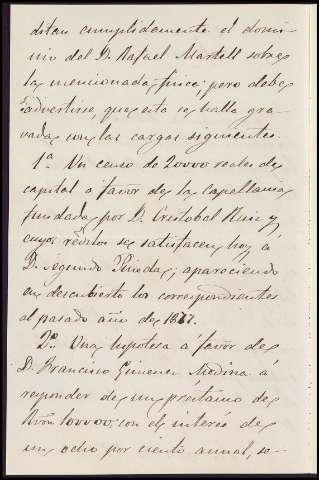 ditan cumplidamente el domi-
nio del D. Rafael Martell sobre
la mencionada finca; pero debe
advertirse, que esta se halla gra-
vada con las cargas siguientes.
1ª. Un censo de 20000 reales de
capital a favor de la Capellania
fundada por D. Cristobal Ruiz y
cuyos réditos se satisfacen hoy á
D. Segundo Pineda; apareciendo
en descubierto los correspondientes
al pasado año de 1877.
2ª. Una hipoteca á favor de
D. Francisco Gimenez Medina á
responder de un préstamo de
100000 con el interés de
un ocho por ciento anual, se-